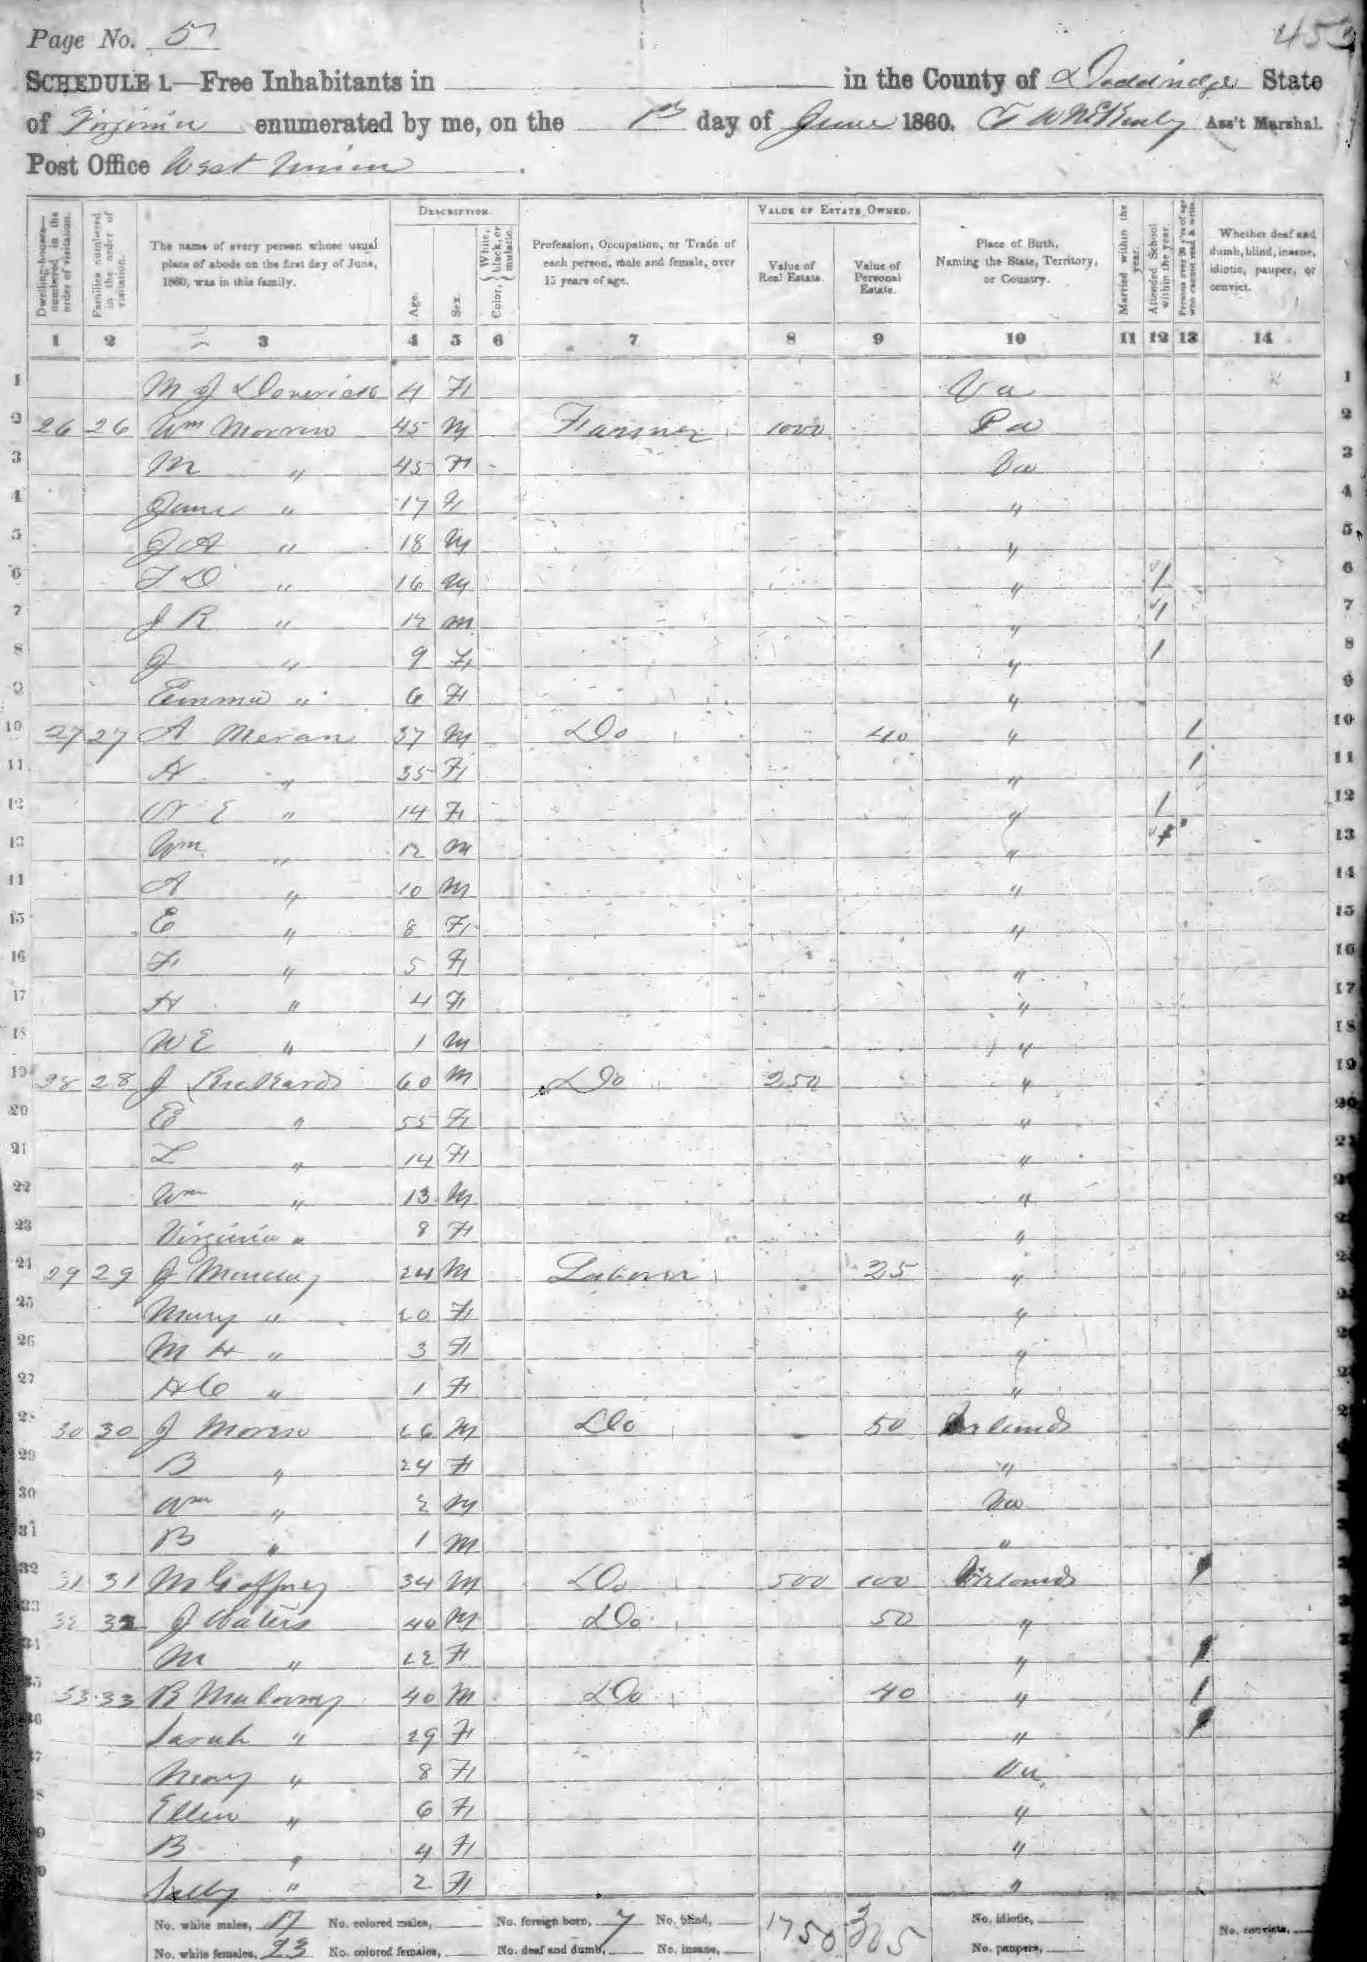 Page No. 5
453
SCHEDULE 1.—Free Inhabitants in in the County of Doddridge State
of Virginia enumerated by me, on the 1st day of June 1860. Ass't Marshal.
Post Office West Union
Dwelling-houses—numbered in the order of visitation.
Families numbered in the order of visitation.
The name of every person whose usual place of abode on the first day of June, 1860, was in this family.
DESCRIPTION.
Age.
Sex.
Color, White, black, or mulatto.
Profession, Occupation, or Trade of each person, male and female, over 15 years of age.
VALUE OF ESTATE OWNED.
Value of Real Estate.
Value of Personal Estate.
Place of Birth, Naming the State, Territory, or Country.
Married within the year.
Attended School within the year.
Persons over 20 y'rs of age who cannot read & write.
Whether deaf and dumb, blind, insane, idiotic, pauper, or convict.
1 2 3 4 5 6 7 8 9 10 11 12 13 14
1 M J 4 F Va 1
2 26 26 Wm 45 M Farmer 1000 Pa 2
3 M " 45 F Va 3
4 Jane " 17 F " 4
5 J A " 18 M " 5
6 T D " 16 M " 1 6
7 J R " 12 M " 1 7
8 J " 9 F " 1 8
9 Emma " 6 F " 9
10 27 27 A Meran 37 M Do 40 " 1 10
11 A " 35 F " 1 11
12 N E " 14 F " 1 12
13 Wm " 12 M " 1 13
14 A " 10 M " 14
15 E " 8 F " 15
16 F " 5 F " 16
17 H " 4 F " 17
18 W E " 1 M " 18
19 28 28 J 60 M Do 250 " 19
20 E " 55 F " 20
21 L " 14 F " 21
22 Wm " 13 M "
23 Virginia " 8 F "
24 29 29 J 24 M Laborer 25 "
25 Mary " 20 F "
26 M H " 3 F "
27 H C " 1 F "
28 30 30 J 26 M Do 50 Irland
29 B " 24 F "
30 Wm " 2 M Va
31 B " 1 M "
32 31 31 M Gaffney 34 M Do 500 100 Irland 1
33 32 32 J Waters 40 M Do 50 "
34 M " 22 F " 1
35 33 33 B 40 M Do 40 " 1
36 Sarah " 29 F " 1
37 Mary " 8 F Va
38 Ellen " 6 F "
39 B " 4 F "
40 Sally " 2 F "
No. white males, 17 No. colored males, No. foreign born, 7 No. blind, 1750 305 No. idiotic,
No. white females, 23 No. colored females, No. deaf and dumb, No. insane, No. paupers, No. convicts,